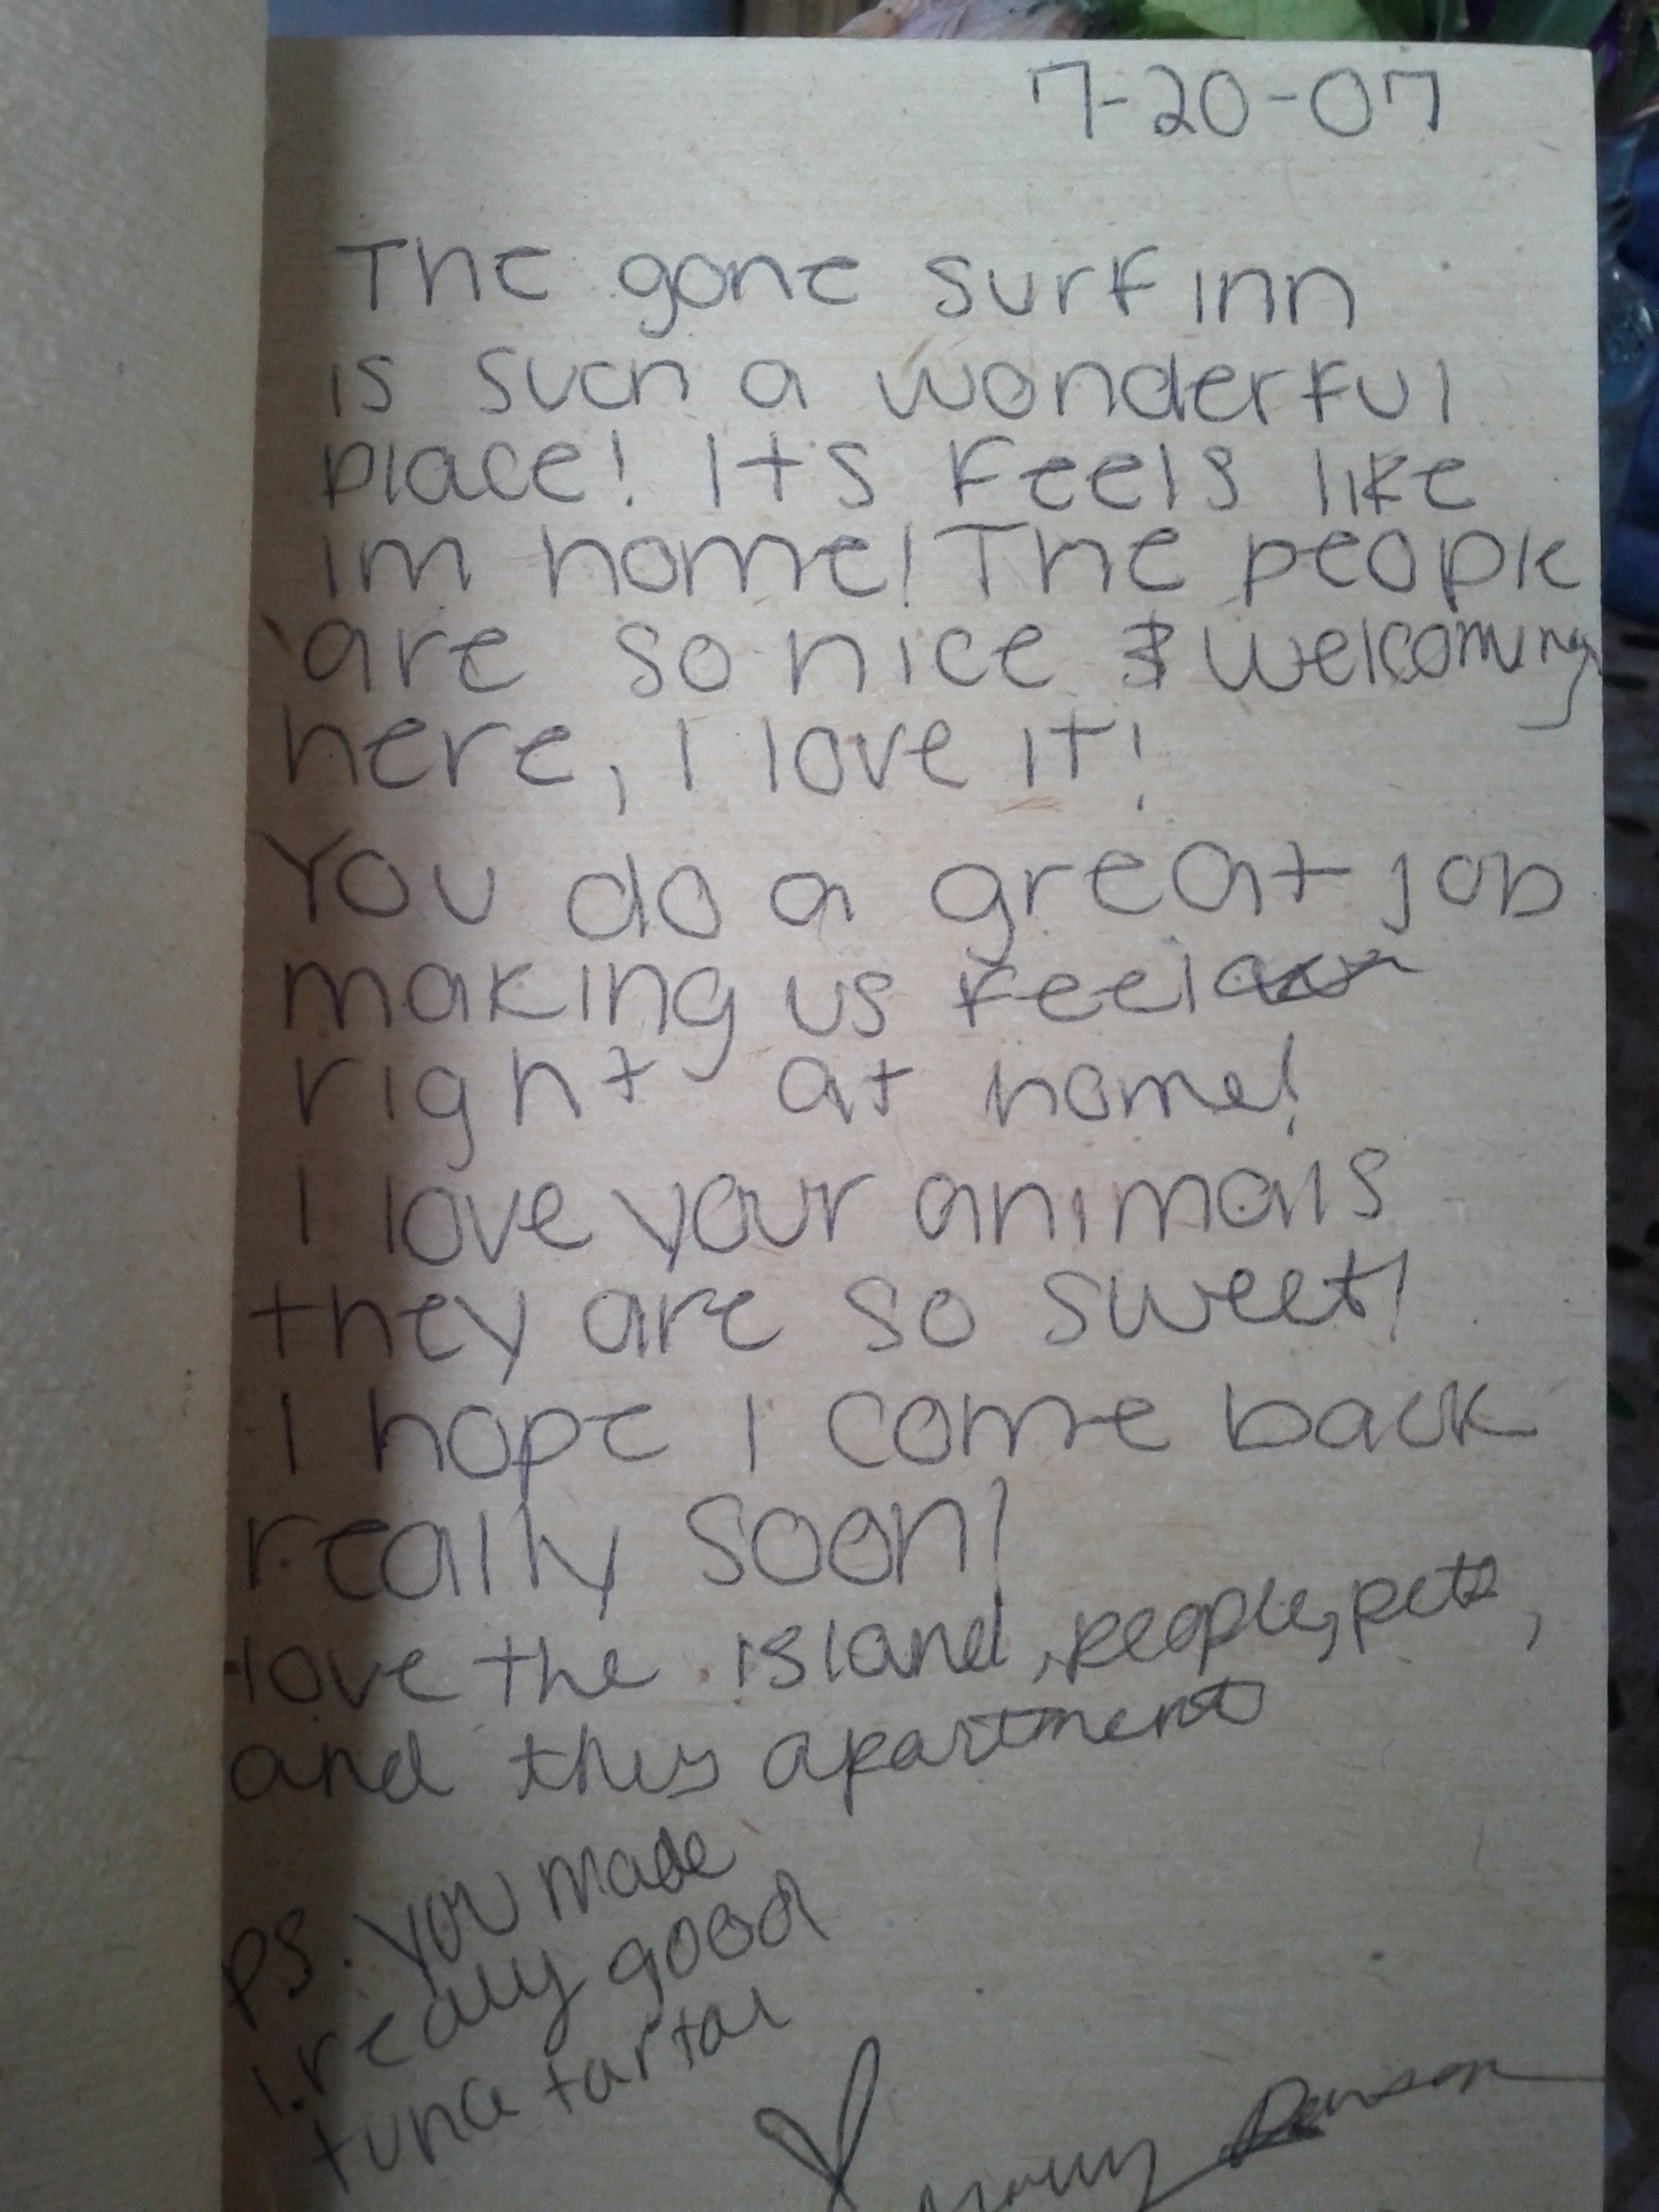 7-20-07
The gone surf inn
is such a wonderful
place! Its feels like
im home! The people
are so nice & welcoming
here, I love it!
You do a great job
making us feel
right at home!
I love your animals
they are so sweet!
I hope I come back
really soon!
love the island, people, pets,
and this apartment
PS. you made
really good
tuna tartar